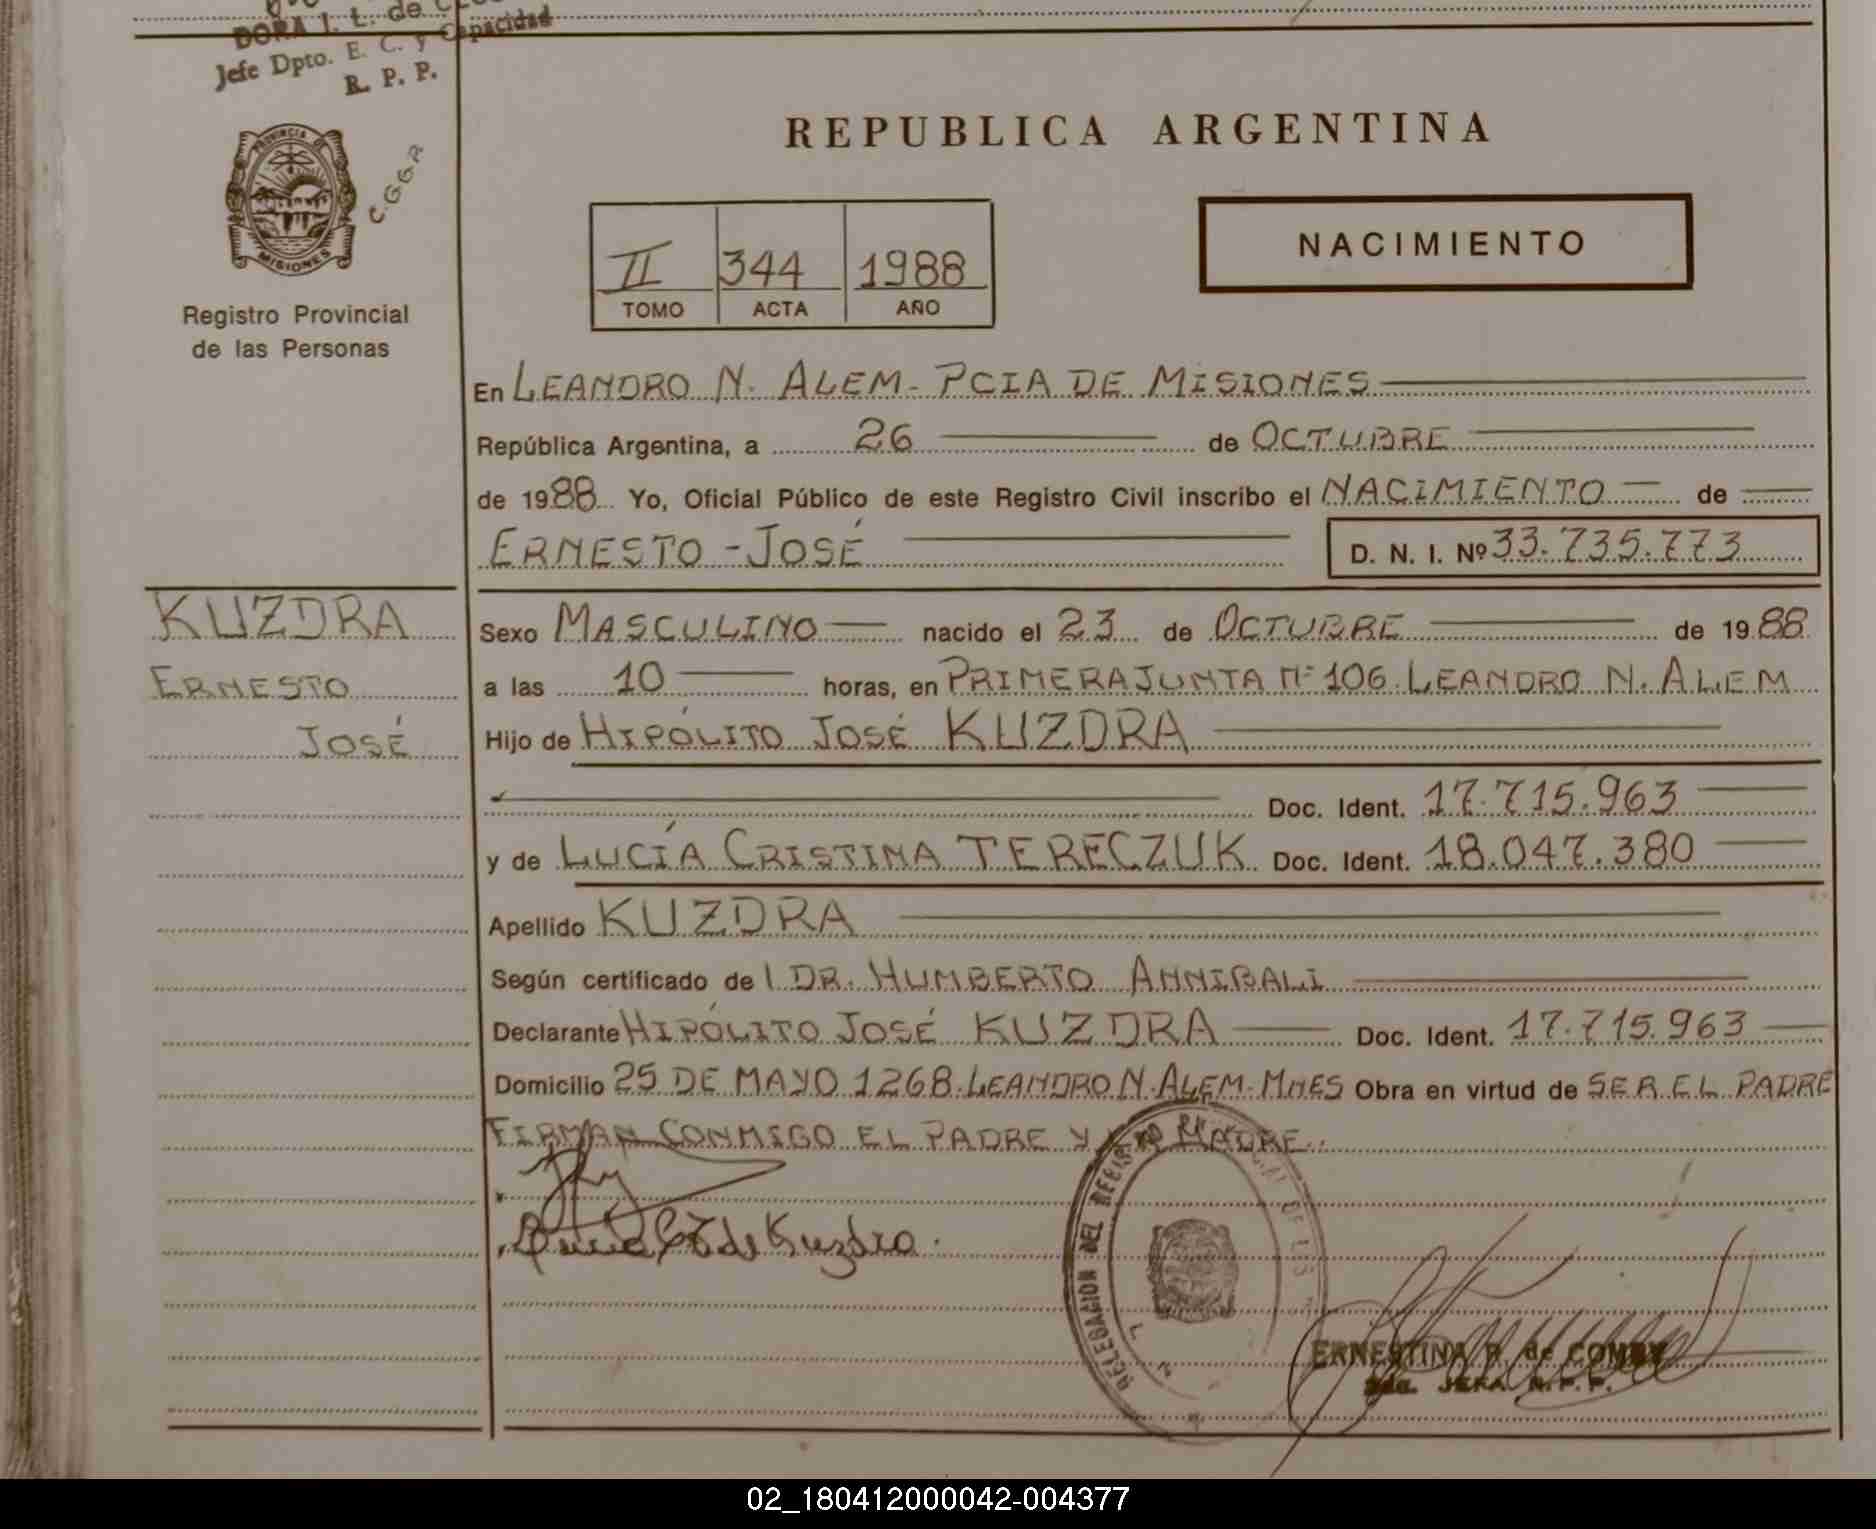 DORA I. L. de
Jefe Dpto. E. C. y Capacidad
R. P. P.
PROVINCIA
MISIONES
C.G.G.R
Registro Provincial
de las Personas
REPUBLICA ARGENTINA
II 344 1988
TOMO ACTA AÑO
NACIMIENTO
En LEANDRO N. ALEM - PCIA DE MISIONES
República Argentina, a 26 de OCTUBRE
de 1988 Yo, Oficial Público de este Registro Civil inscribo el NACIMIENTO de
ERNESTO - JOSÉ D. N. I. Nº 33.735.773
KUZDRA
ERNESTO
JOSÉ
Sexo MASCULINO nacido el 23 de OCTUBRE de 1988
a las 10 horas, en PRIMERA JUNTA Nº 106 LEANDRO N. ALEM
Hijo de HIPÓLITO JOSÉ KUZDRA
Doc. Ident. 17.715.963
y de LUCÍA CRISTINA TERECZUK Doc. Ident. 18.047.380
Apellido KUZDRA
Según certificado de l DR. HUMBERTO ANNIBALI
Declarante HIPÓLITO JOSÉ KUZDRA Doc. Ident. 17.715.963
Domicilio 25 DE MAYO 1268. LEANDRO N. ALEM - MNES Obra en virtud de SER EL PADRE
FIRMAN CONMIGO EL PADRE Y LA MADRE..
Lucia C T de Kuzdra.
DELEGACION DEL REGISTRO
ERNESTINA R. de COMBY
JEFA R.P.P.
02_180412000042-004377